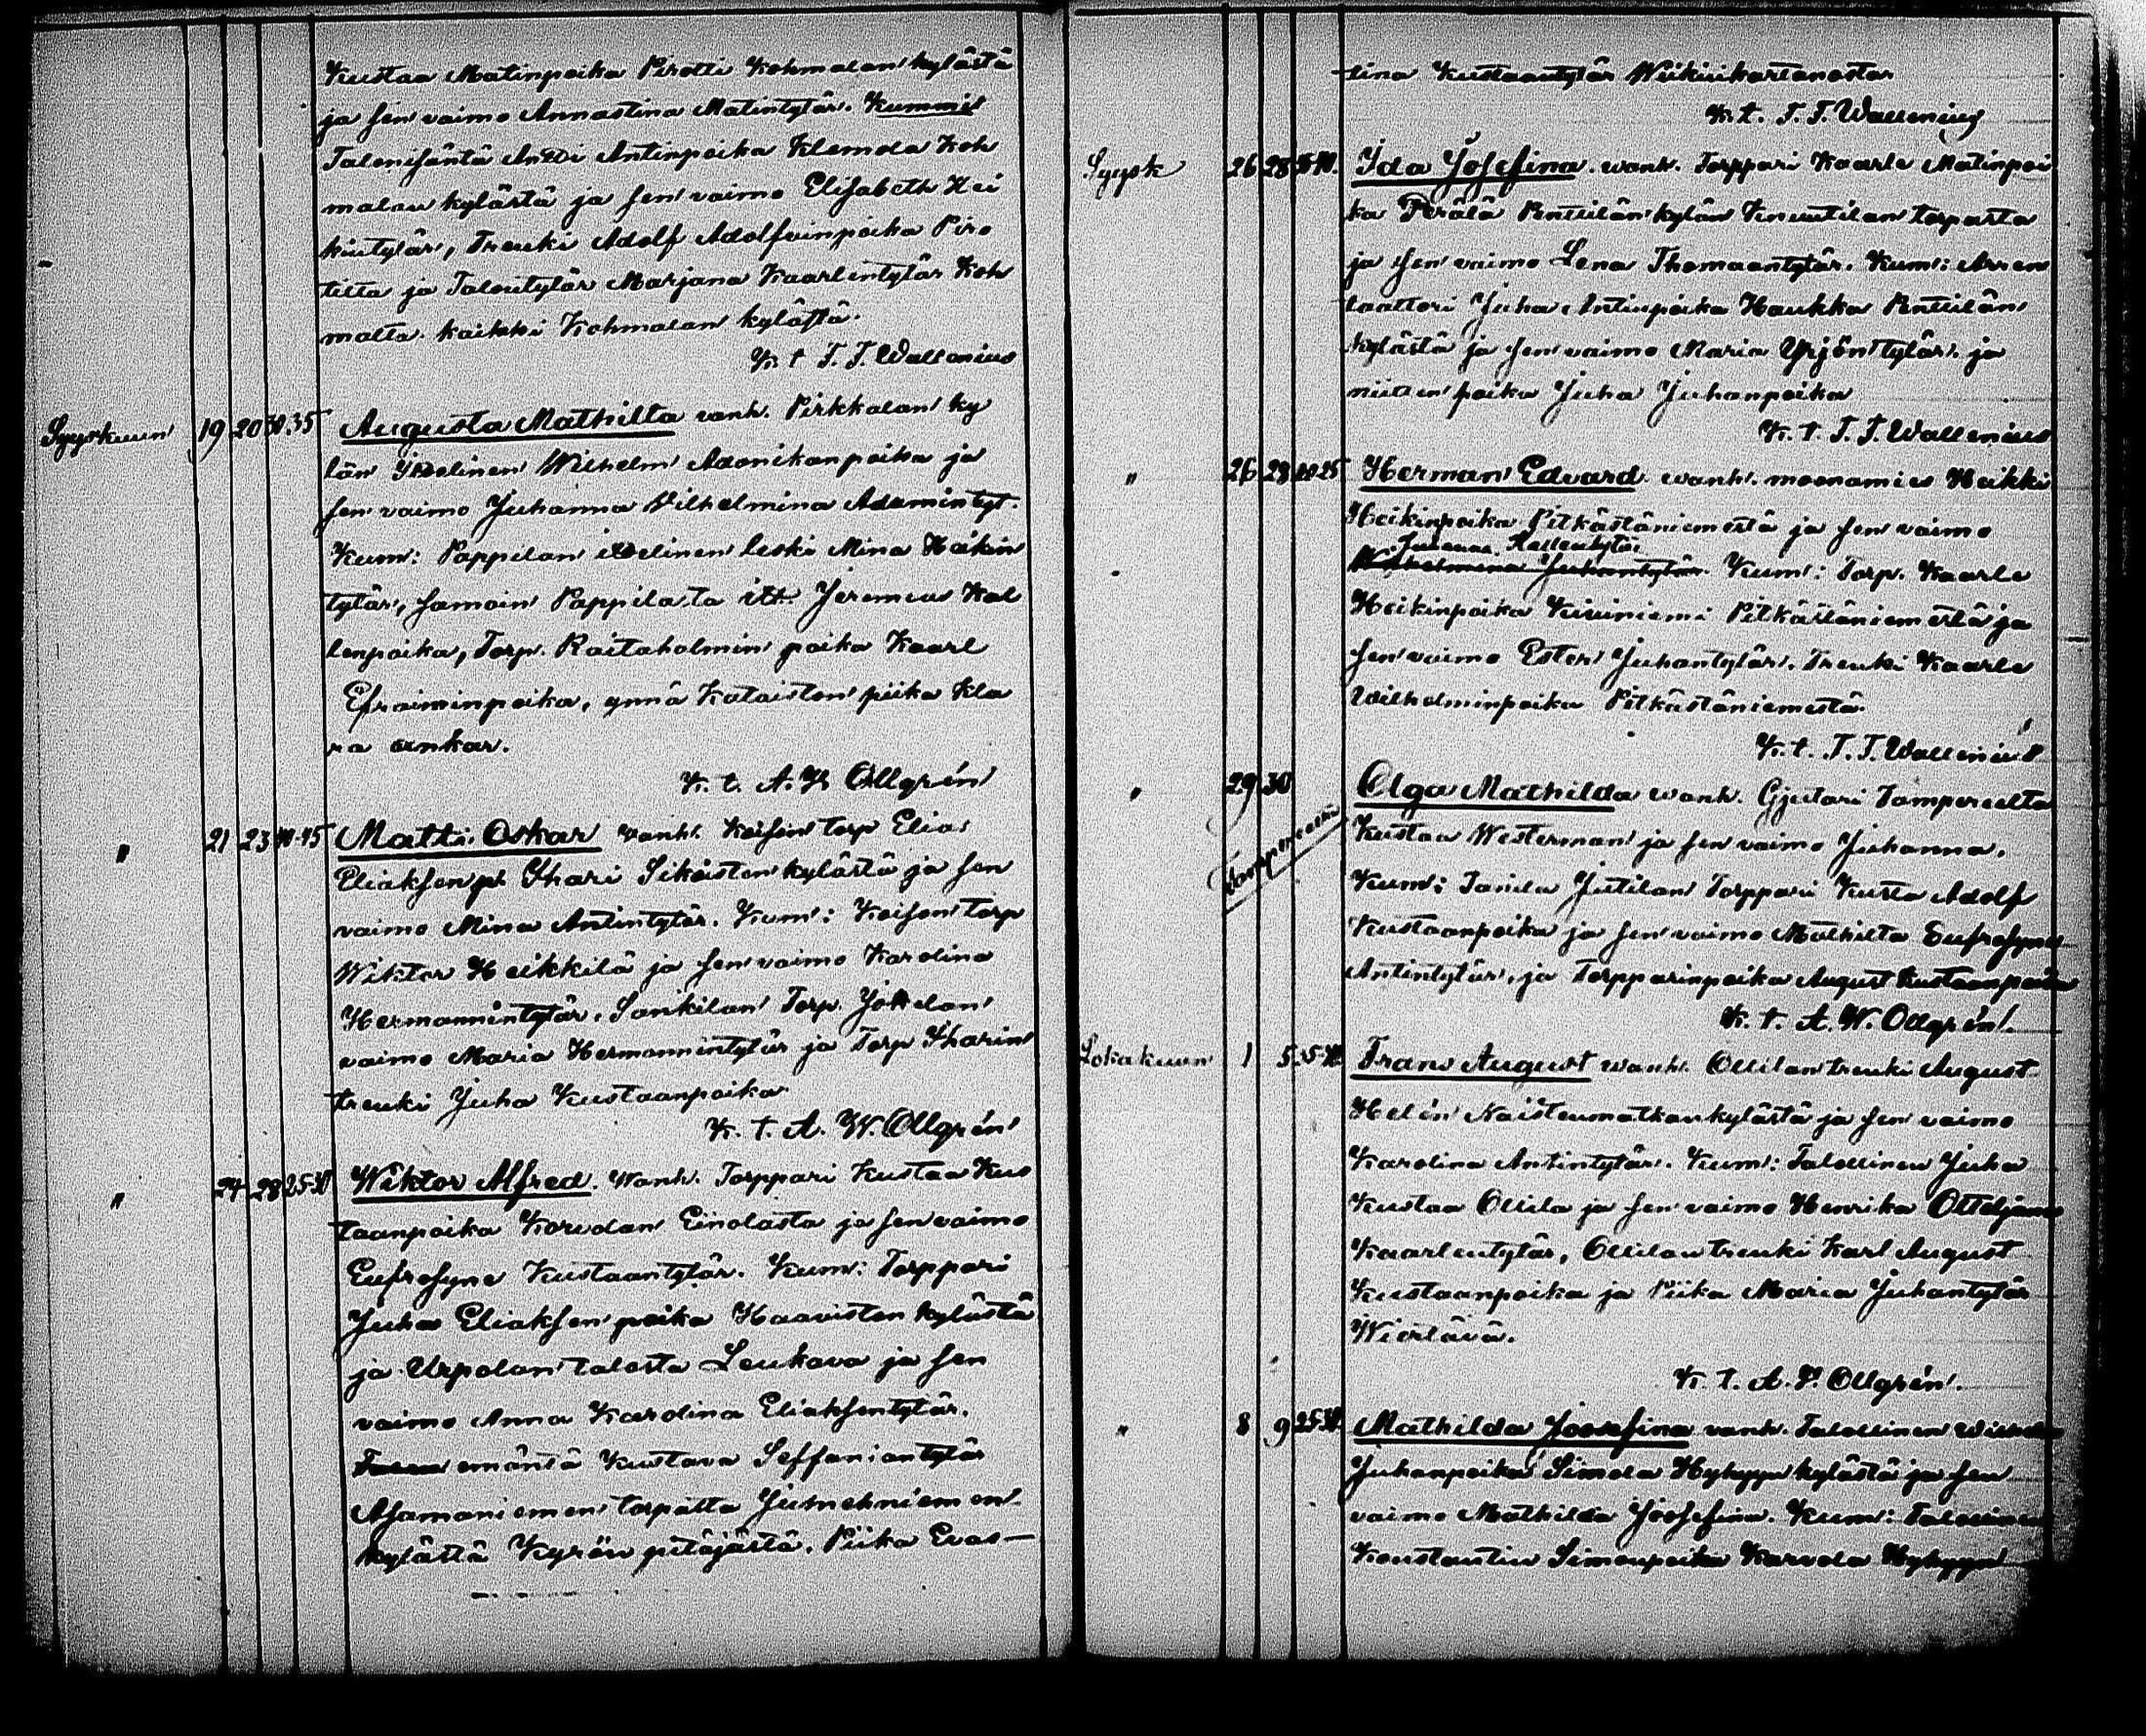 Kustaa Matinpoika Pirotti Kohmalan kylästä
ja sen vaimo Annastina Matintytär. Kummit
Talonisäntä Antti Antinpoika Klemola Koh
malan kylästä ja sen vaimo Elisabeth Hei
kintytär, Trenki Adolf Adolfvinpoika Piro
tilta ja Talontytär Marjana Kaarlentytär Koh
malta. kaikki Kohmalan kylästä.
K. t. T. T. Wallenius
Syyskuun 19 20 30.35 Augusta Mathilta vanh. Pirkkalan ky
län Itselinen Wilhelm Adonikanpoika ja
sen vaimo Juhanna Vilhelmina Adamintyt.
Kum: Pappilan itselinen leski Mina Heikin
tytär, samoin Pappilasta its. Jeremias Kal
lenpoika, Torp. Raitaholmin poika Kaarl
Efraiminpoika, ynnä Kataiston piika Kla
ra
K. t. A. W. Ollgrén
" 21 23 40-45 Matti Oskar vanh. Koison torp Elias
Eliaksenp. Ihari Sikoisten kylästä ja sen
vaimo Mina Antintytär. Kum: Koison torp
Wiktor Heikkilä ja sen vaimo Karolina
Hermannintytär. Sankilan Torp. Jokelan
vaimo Maria Hermannintytär ja Torp Iharin
trenki Juha Kustaanpoika
K. t. A. W. Ollgrén
" 24 28 25-30 Wiktor Alfred. Wanh. Torppari Kustaa Kus
taanpoika Korvolan Einolasta ja sen vaimo
Eufrosyne Kustaantytär. Kum: Torppari
Juha Eliaksen poika Haaviston kylästä
ja Urpolan talosta Leukava ja sen
vaimo Anna Karolina Eliaksentytär.
emäntä Kustava Seffaniantytär
Asamaniemen torpalta Jumehniemen
kylästä Kyrön pitäjästä. Piika Evas-
tina Kustaantytär Wiikinkartanosta
K. t. T. T. Wallenius
Syysk 26 28 Ida Josefina. wanh. Torppari Kaarle Matinpoi
ka Perälä Penttilän kylän Knuutilan torpasta
ja sen vaimo Lena Thomaantytär. Kum: Arren
taattori Juha Antinpoika Haukka Penttilän
kylästä ja sen vaimo Maria Yrjöntytär. ja
niitten poika Juha Juhanpoika
K. t. T. T. Wallenius
" 26 28 20-25 Herman Edvard. wanh. moonamies Heikki
Heikinpoika Pitkästäniemestä ja sen vaimo
Juhanna Kallentytär
Wilhelmina Juhantytär. Kum: Torp. Kaarle
Heikinpoika Kiviniemi Pitkästäniemestä ja
sen vaimo Ester Juhantytär. Trenki Kaarle
Wilhelminpoika Pitkästäniemestä.
K. t. T. T. Wallenius
" 29 30 Olga Mathilda wanh. Gjutari Tampereelta
Kustaa Westerman ja sen vaimo Juhanna.
Kum: Tanila Jutilan Torppari Kusta Adolf
Kustaanpoika ja sen vaimo Mathilta Eufrosyna
Antintytär, ja Torpparinpoika August Kustaanpoika
K. t. A. W. Ollgrén.
Lokakuun 1 5 35-40 Frans August wanh. Ollilan trenki August
Helén Naistenmatkan kylästä ja sen vaimo
Karolina Antintytär. Kum: Talollinen Juha
Kustaa Ollila ja sen vaimo Henrika Ottiljana
Kaarlentytär, Ollilan trenki Karl August
Kustaanpoika ja Piika Maria Juhantytär
K. t. A. W. Ollgrén.
" 8 9 25-30 Mathilda Joosefina vanh. Talollinen Wilhelm
Juhanpoika Simola Hyhkyn kylästä ja sen
vaimo Mathilda Joosefina. Kum: Talollinen
Konstantin Simonpoika Karvola Hyhkyn